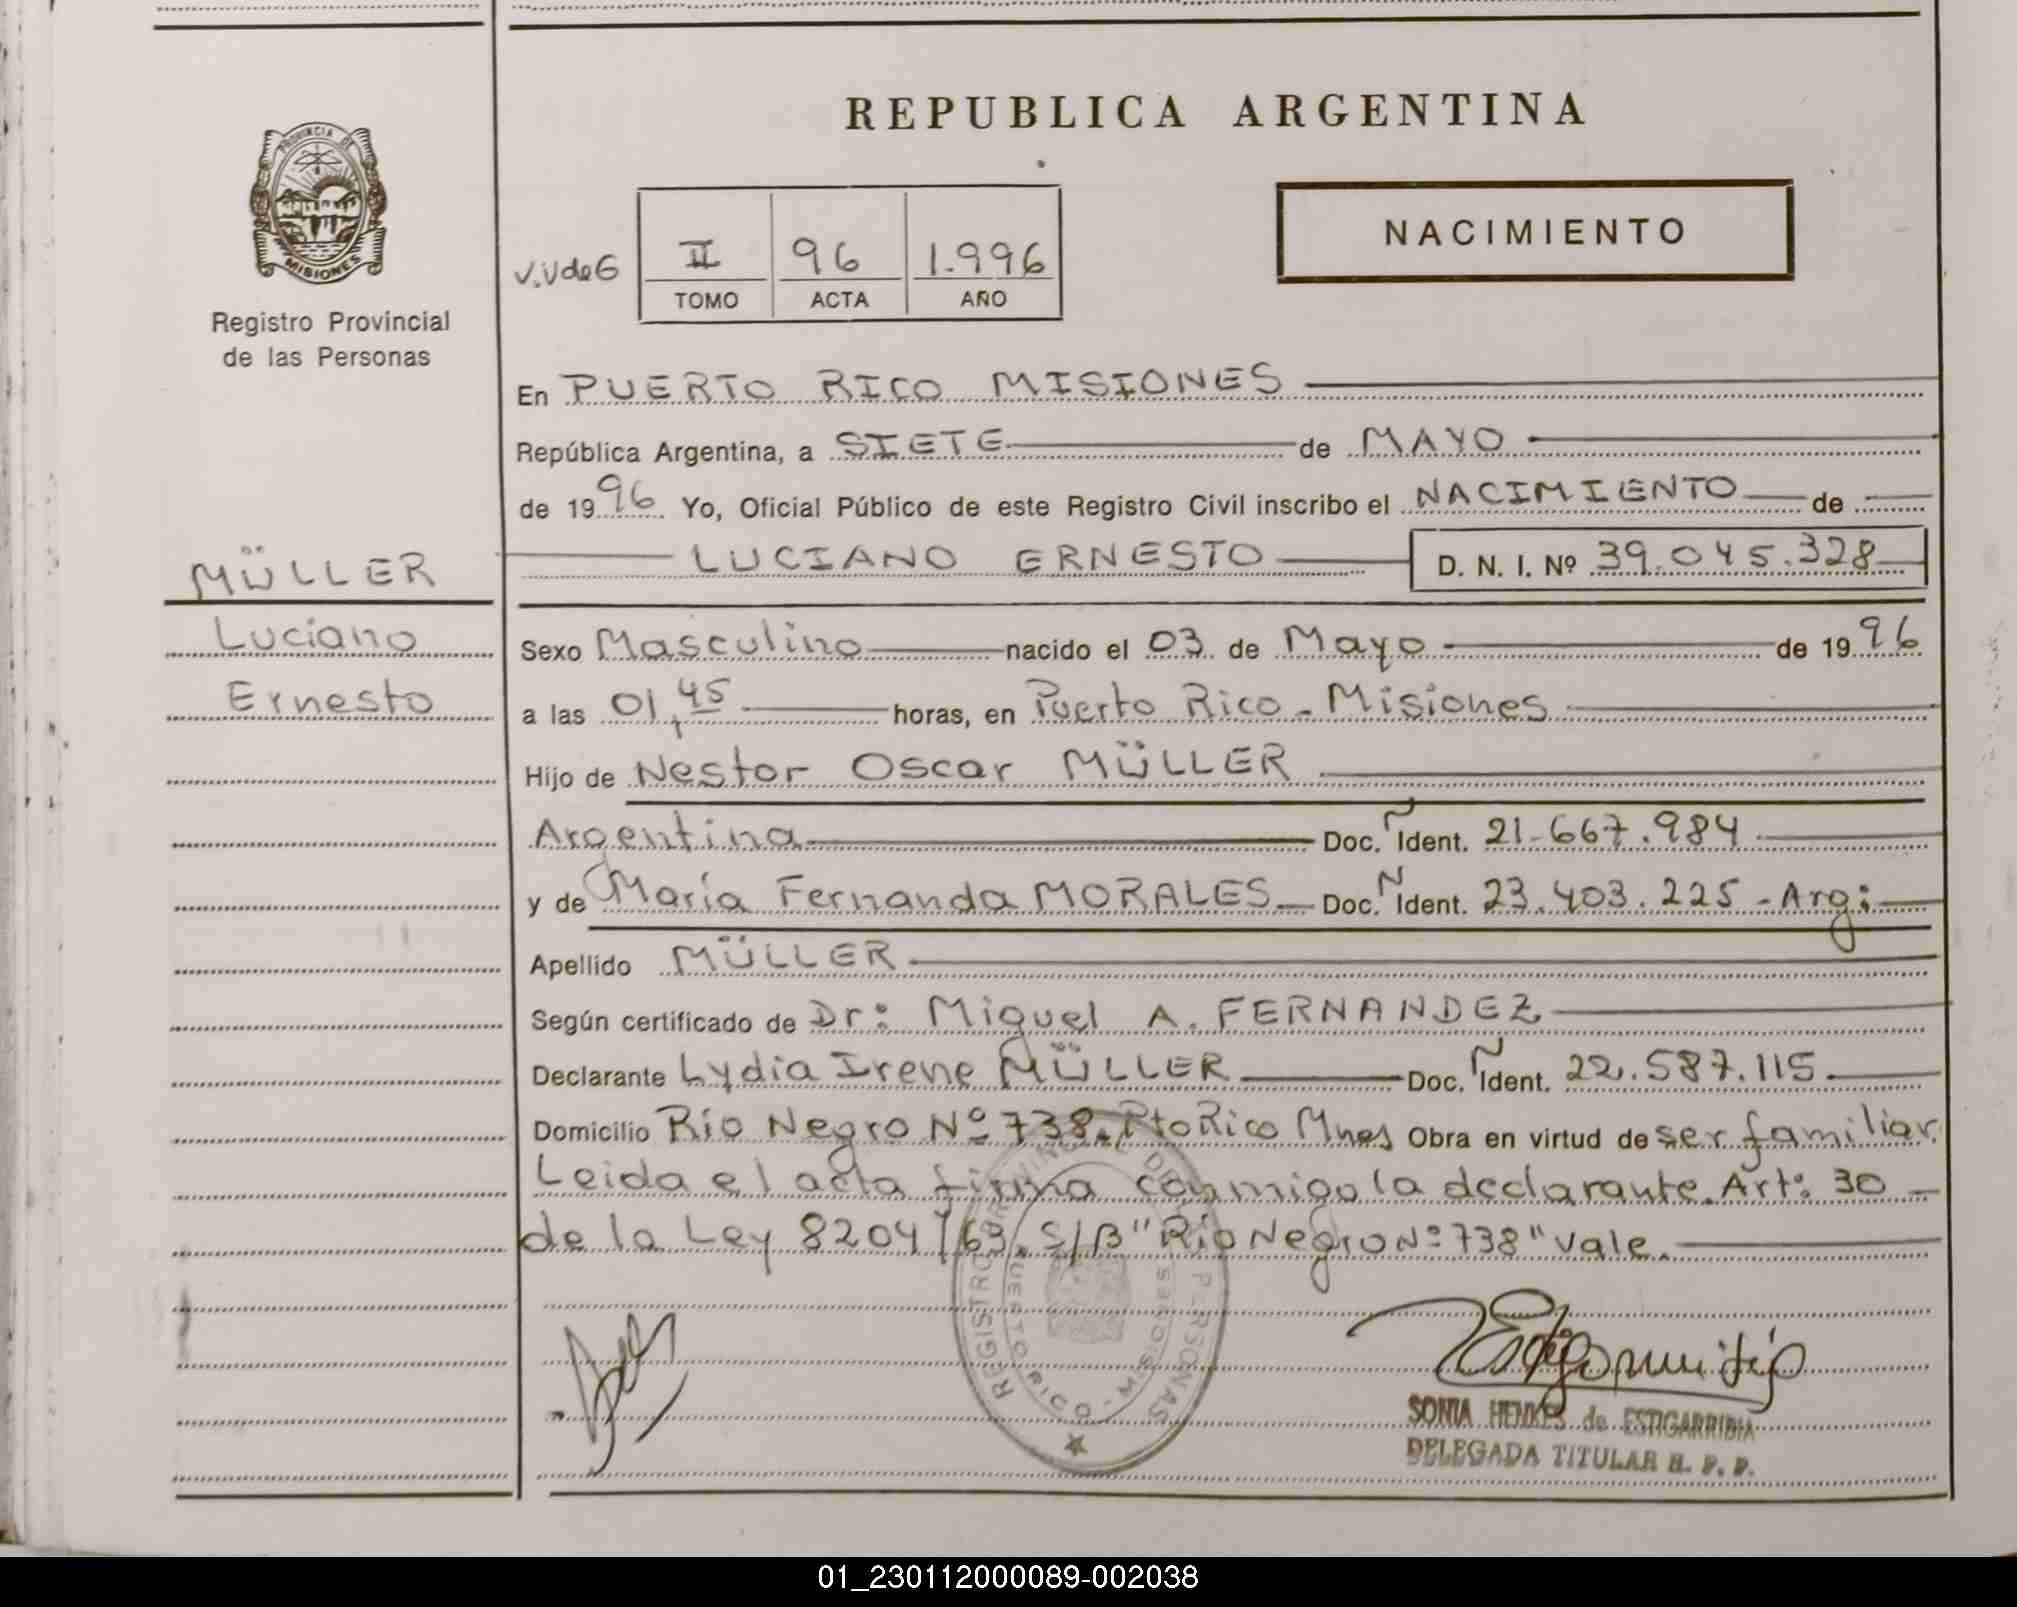 REPUBLICA ARGENTINA
PROVINCIA DE
MISIONES
Registro Provincial
de las Personas
NACIMIENTO
II 96 1.996
TOMO ACTA AÑO
En PUERTO RICO MISIONES
República Argentina, a SIETE de MAYO
de 1996 Yo, Oficial Público de este Registro Civil inscribo el NACIMIENTO de
MÜLLER
LUCIANO ERNESTO D. N. I. Nº 39.045.328
Luciano
Sexo Masculino nacido el 03 de Mayo de 1996
Ernesto
a las 01,45 horas, en Puerto Rico - Misiones
Hijo de Nestor Oscar MÜLLER
Argentina Doc. Ident. 21.667.984
y de María Fernanda MORALES Doc. Ident. 23.403.225 - Arg:
Apellido MÜLLER
Según certificado de Dr: Miguel A. FERNANDEZ
Declarante Lydia Irene MÜLLER Doc. Ident. 22.587.115.
Domicilio Río Negro Nº 738. Pto Rico Mnes Obra en virtud de ser familiar.
Leida el acta firma conmigo la declarante. Art: 30
de la Ley 8204/63. S/B "Río Negro Nº 738" Vale.
REGISTRO PROVINCIAL DE LAS PERSONAS
PUERTO RICO - MISIONES
SONIA HENKES de ESTIGARRIBIA
DELEGADA TITULAR R. P. P.
01_230112000089-002038